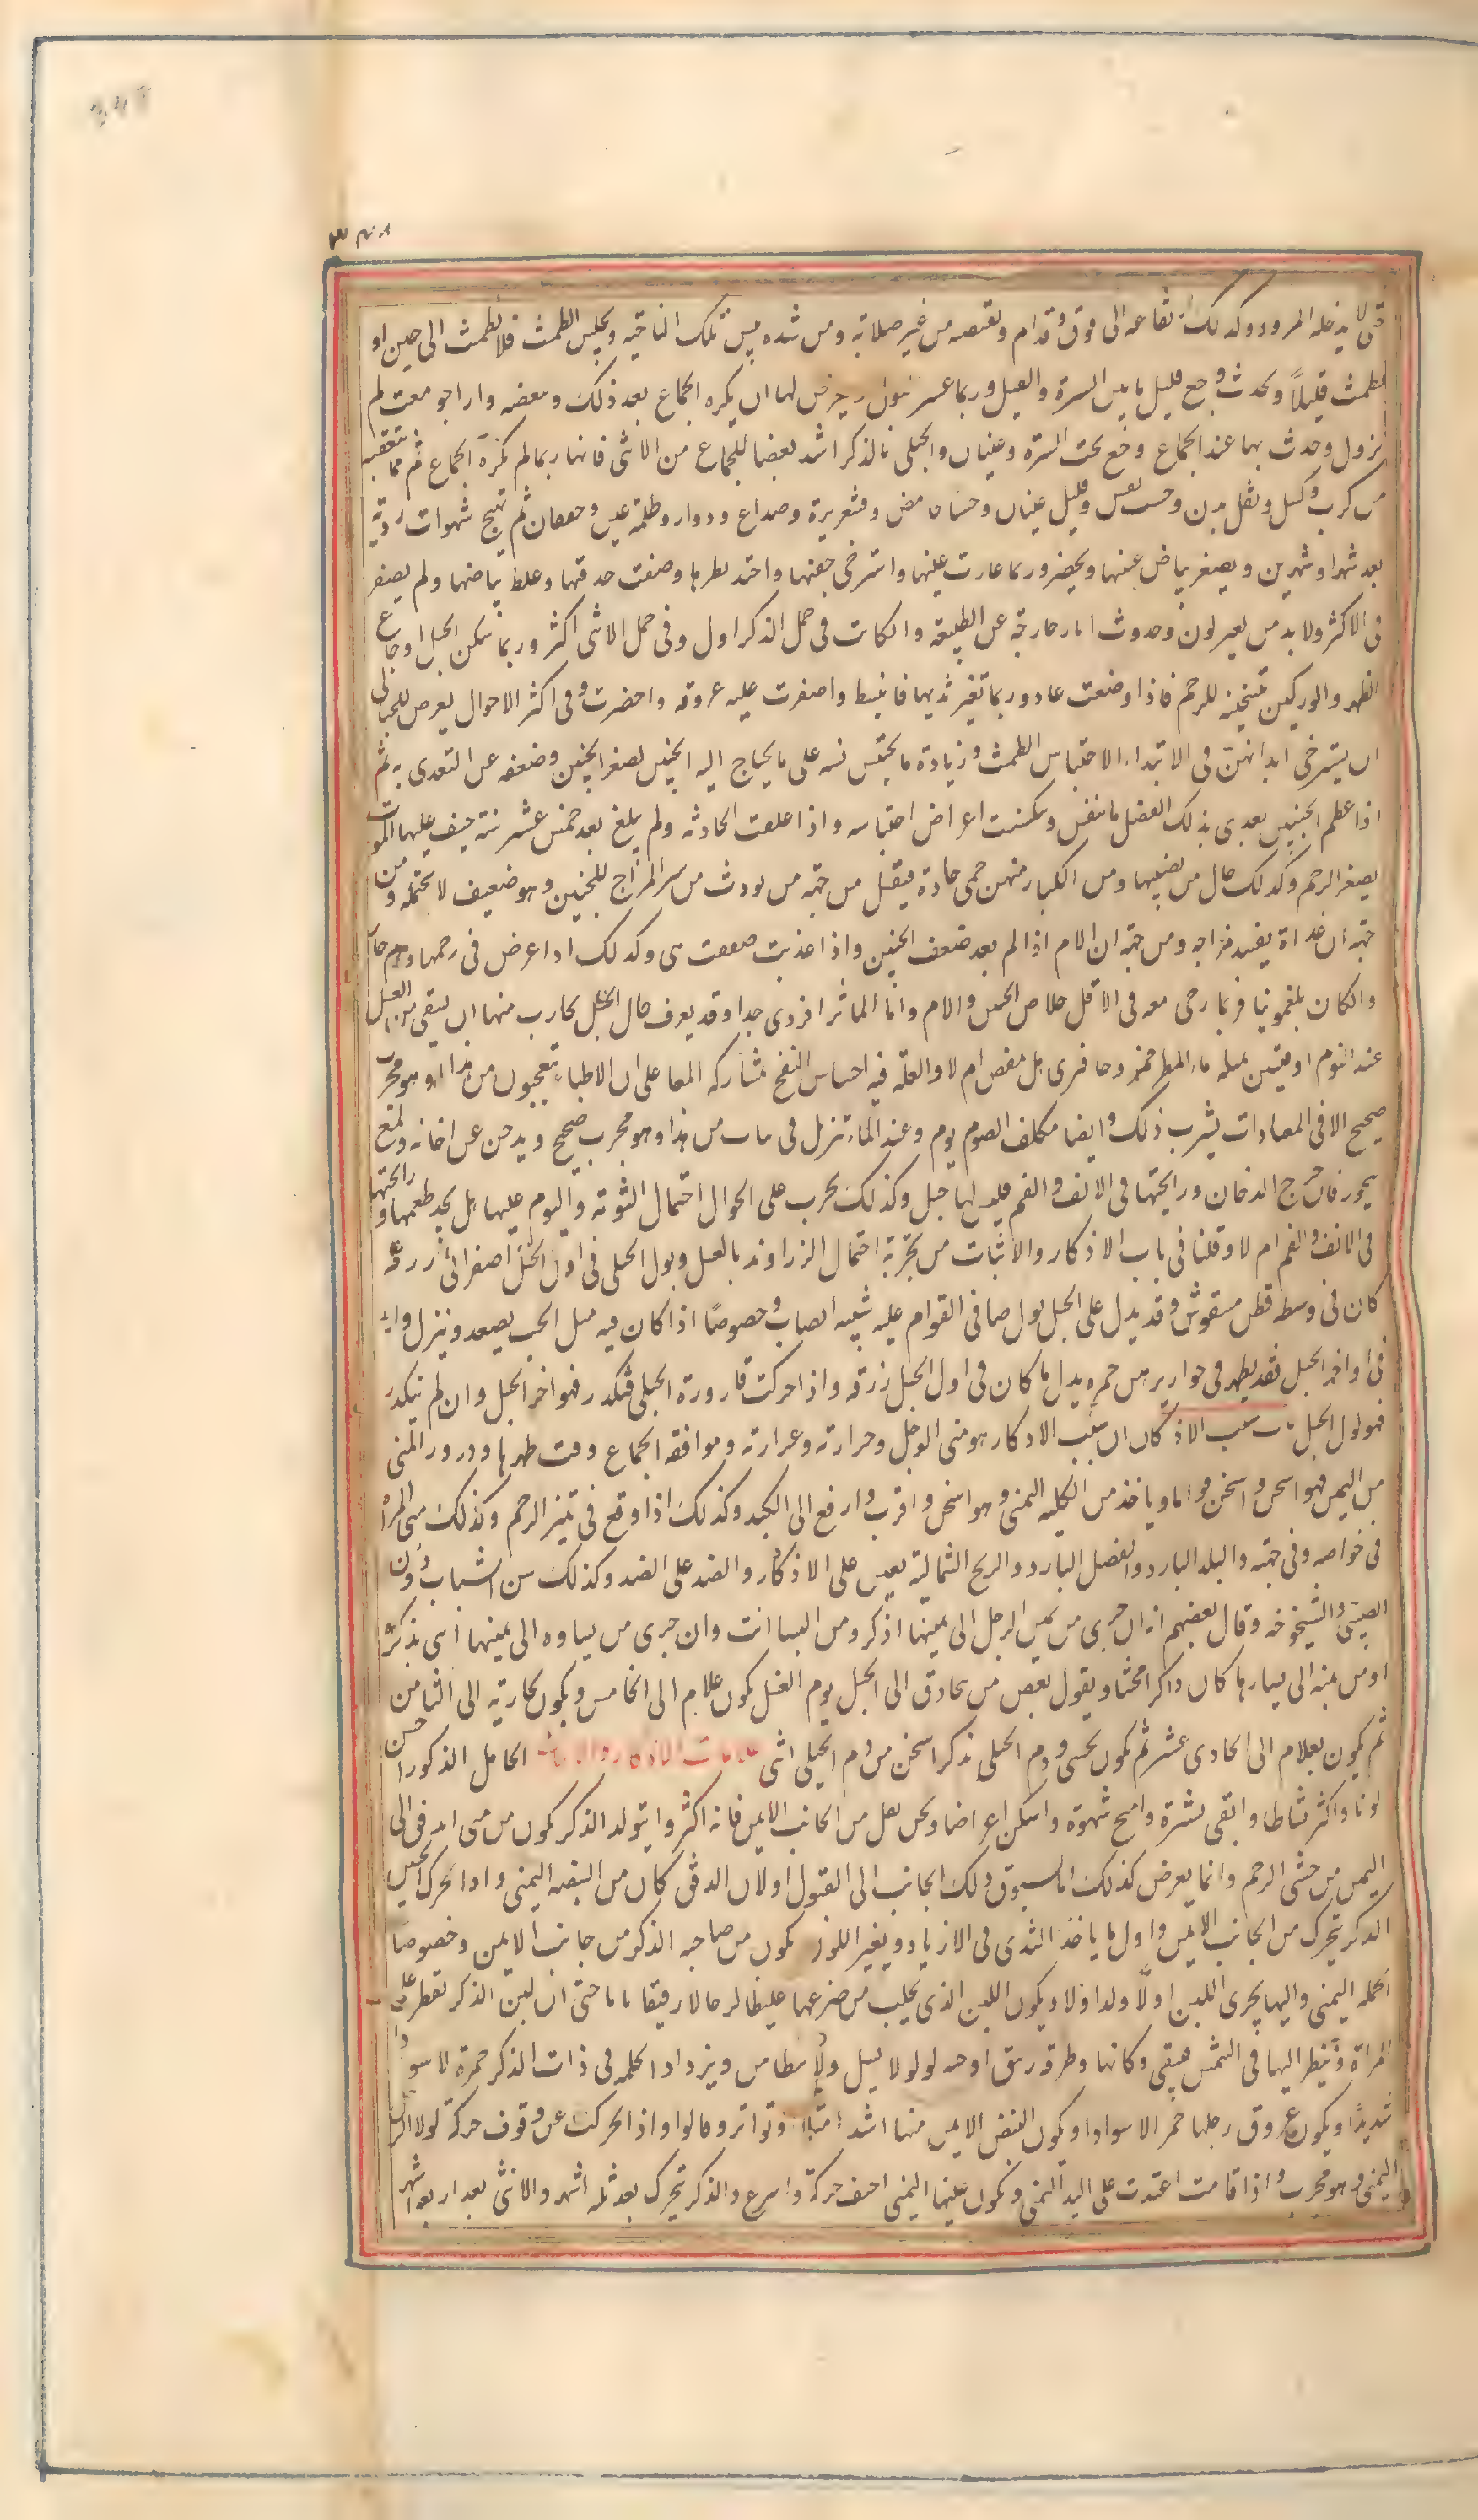 حتى لا يدخله المرود وكذلك ارتفاعه الى فوق وقدام وتقلصه من غير صلابة ومن شده يبس تلك الناحيه ويحبس الطمث فلا تطمث الى حين او
تطمث قليلاً ويحدث وجع قليل ما بين السرة والقبل وربما عسر البول ويعرض لها ان يكره الجماع بعد ذلك وتبغضه واذا جومعت لم
تنزل وحدث بها عند الجماع وجع تحت السرة وغثيان والحبلى بالذكر اشد بغضا للجماع من الانثى فانها ربما لم تكره الجماع ثم ما يتعقبه
من كرب وكسل وثقل بدن وخبث نفس وقليل غثيان وجشاء حامض وقشعريرة وصداع ودوار وظلمة عين وخفقان ثم تهيج شهوات رديه
بعد شهر او شهرين ويصفر بياض عينها ويخضر وربما غارت عينها واسترخى جفنها واحتد نظرها وصفت حدقتها وغلظ بياضها ولم يصفر
فى الاكثر ولا بد من تغير لون وحدوث اثار خارجة عن الطبيعة وان كانت فى حمل الذكر اقل وفى حمل الانثى اكثر وربما سكن الحبل اوجاع
الظهر والوركين بتسخينه للرحم فاذا وضعت عاد وربما تغير ثديها فانبسط واصفرت عليه عروقه واخضرت وفى اكثر الاحوال يعرض للحبالى
ان يسترخى ابدانهن فى الابتداء لاحتباس الطمث وزيادة ما يحتبس منه على ما يحتاج اليه الجنين لصغر الجنين وضعفه عن التغذى به ثم
اذا عظم الجنين تغذى بذلك الفضل فانتفش وسكنت اعراض احتباسه واذا علقت الحادثه ولم يبلغ بعد خمس عشر سنة خيف عليها الموت
لصغر الرحم وكذلك حال من يصيبها ومن الكبار منهن حمى حادة فيقتل من جهة من يورث من سوء المزاج للجنين وهو ضعيف لا يحتمله ومن
جهة ان غذاءه يفسد مزاجه ومن جهة ان الام اذا لم تغذ ضعف الجنين واذا غذيت ضعفت هى وكذلك اذا عرض فى رحمها ورم حار
وان كان بلغمونيا فربما رجى معه فى الاقل خلاص الجنين والام واما الماشرا فردى جدا وقد يعرف حال الحبل بتجارب منها ان يسقى من العسل
عند النوم اوقيتين بمثله ماء المطر ممزوجا فيرى هل تمغص ام لا والعلة فيه احتباس النفخ بمشاركه المعا على ان الاطباء يتعجبون من هذا وهو مجرب
صحيح الا فى المعتادات لشرب ذلك وايضا تكلف الصوم يوم وعند الماء تزمل فى ثياب من هذا وهو مجرب صحيح ويدخن على اجانة وقمع
ببخور فان خرج الدخان ورائحتها فى الانف والفم فليس بها حبل وكذلك تجرب على الخواء احتمال الثومة والنوم عليها هل تجد طعمها ورائحتها
فى الانف والفم ام لا وقلنا فى باب الاذكار والايناث من تجربة احتمال الزراوند بالعسل وبول الحبلى فى اول الحبل اصفر الى زرقة
كان فى وسطه قطن منفوش وقد يدل على الحبل بول صافى القوام عليه شبيه الضباب وخصوصًا اذا كان فيه مثل الحب يصعد وينزل واما
فى اواخر الحبل فقد يظهر فى قواريرهن حمرة بدل ما كان فى اول الحبل زرقة واذا حركت قارورة الحبلى فتكدر فهو اخر الحبل وان لم يتكدر
فهو اول الحبل سبب الاذكار ان سبب الاذكار هو منى الرجل وحرارته وغزارته وموافقة الجماع وقت طهرها ودرور المنى
من اليمين فهو اسخن واثخن قواما وياخذ من الكليه اليمنى وهو اسخن واقرب وارفع الى الكبد وكذلك اذا وقع فى يمين الرحم وكذلك منى المراة
فى خواصه وفى جهته والبلد البارد والفصل البارد والريح الشمالية يعين على الاذكار والضد على الضد وكذلك سن الشباب دون
الصبى والشيخوخه وقال بعضهم انه ان جرى من يمين الرجل الى يمينها اذكر ومن اليسار انث وان جرى من يساره الى يمينها انثى مذكرة
او من يمينه الى يسارها كان ذاكرا مخنثا ويقول بعض من تحاذق ان الحبل يوم الغسل يكون بغلام الى الخامس ويكون بجارية الى الثامن
ثم يكون بغلام الى الحادى عشر ثم يكون بخنثى ودم الحبلى بذكر اسخن من دم الحبلى بانثى علامات الاذكار والايناث الحامل للذكور احسن
لونا واكثر نشاطا وانقى بشرة واصح شهوة واسكن اعراضا وتحس بثقل من الجانب الايمن فانه اكثر ما يتولد الذكر يكون من منى اندفق الى
اليمين من جنبتى الرحم وانما يعرض كذلك اما لسبوق ذلك الجانب الى القبول او لان الدفق كان من البيضه اليمنى واذا تحرك الجنين
الذكر تحرك من الجانب الايمن واول ما ياخذ الثدى فى الازدياد وتغير اللون يكون من صاحبه الذكر من جانب الايمن وخصوصا
الحلمه اليمنى واليها يجرى اللبن اولاً وتدر اولا ويكون اللبن الذى يحلب من ضرعها غليظا لزجا لا رقيقا مائيا حتى ان لبن الذكر تقطر على
المراة وتنظر اليها فى الشمس فتبقى وكانها قطرة زيبق او حبة لولو لا تسيل ولا تتطامن ويزداد الحلمه فى ذات الذكر حمرة لا سوادا
شديدا ويكون عروق رجلها حمر لا سوادا ويكون النبض الايمن منها اشد امتلاء وتواترا وقالوا واذا تحركت عن وقوف حركة اولا الرجل
اليمنى وهو مجرب واذا قامت اعتمدت على اليد اليمنى وتكون عينها اليمنى اخف حركة واسرع والذكر يتحرك بعد ثلثة اشهر والانثى بعد اربعة اشهر